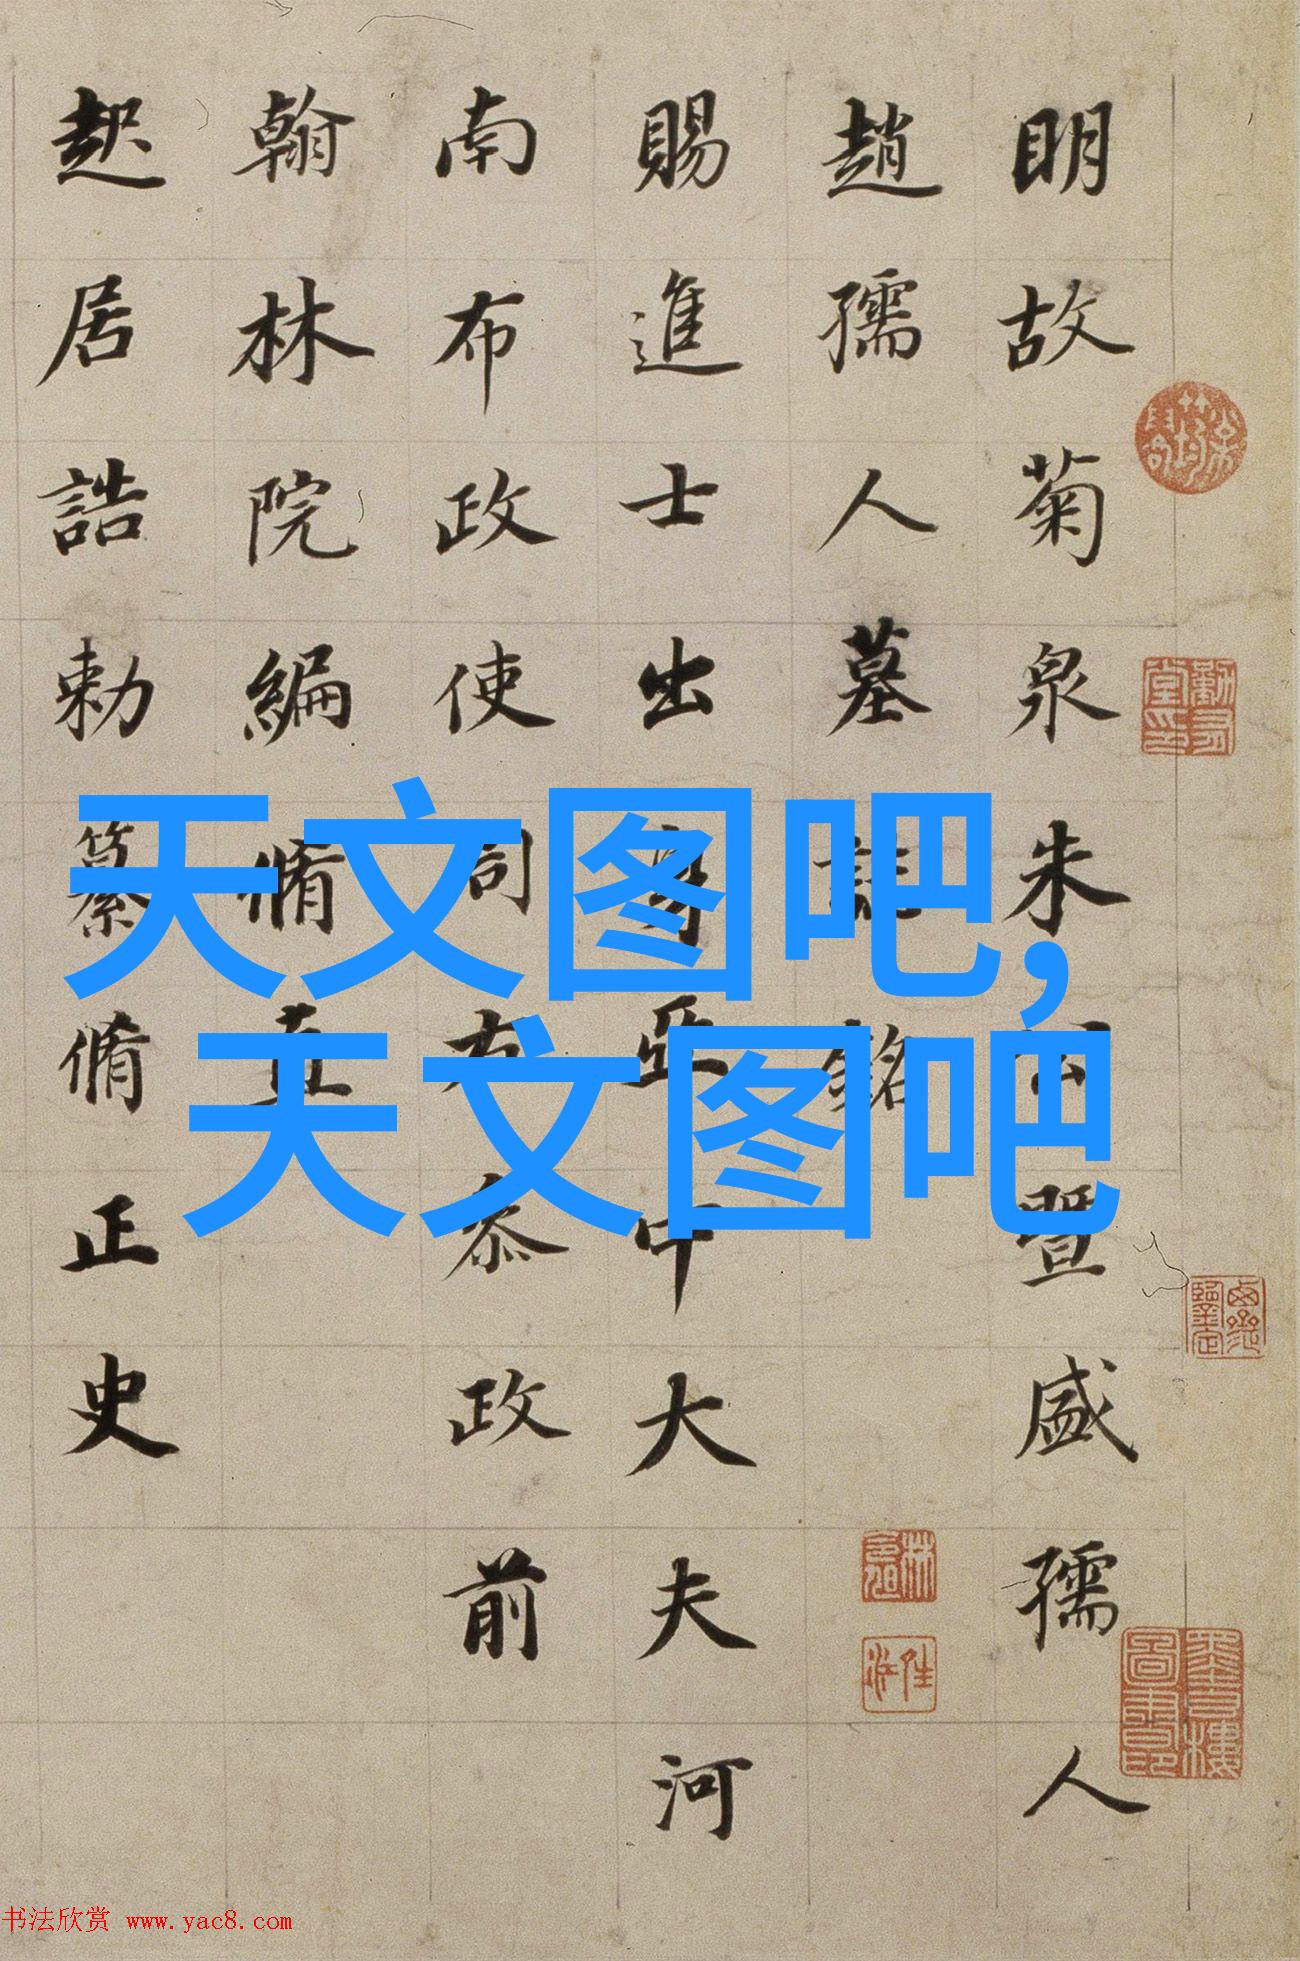 明故菊泉朱公暨盛孺人
趙孺人墓誌銘
賜進士出身亞中大夫河
南布政使司參政前
翰林院編脩直
起居誥勅纂脩正史
天文图吧,
天文图吧
书法欣赏 www.yac8.com